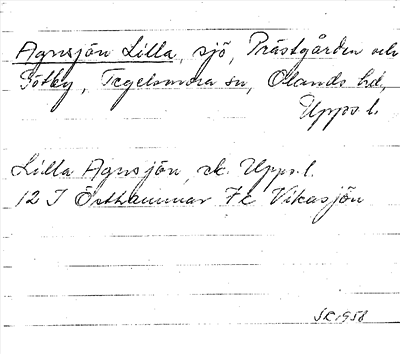 Agnsjön Lilla, sjö, Prästgården och
Götby, Tegelsmora sn, Olands hd,
Upps l.
Lilla Agnsjön, ek. Upps. l.
12 I Östhammar 7c Vikasjön
SR 1958